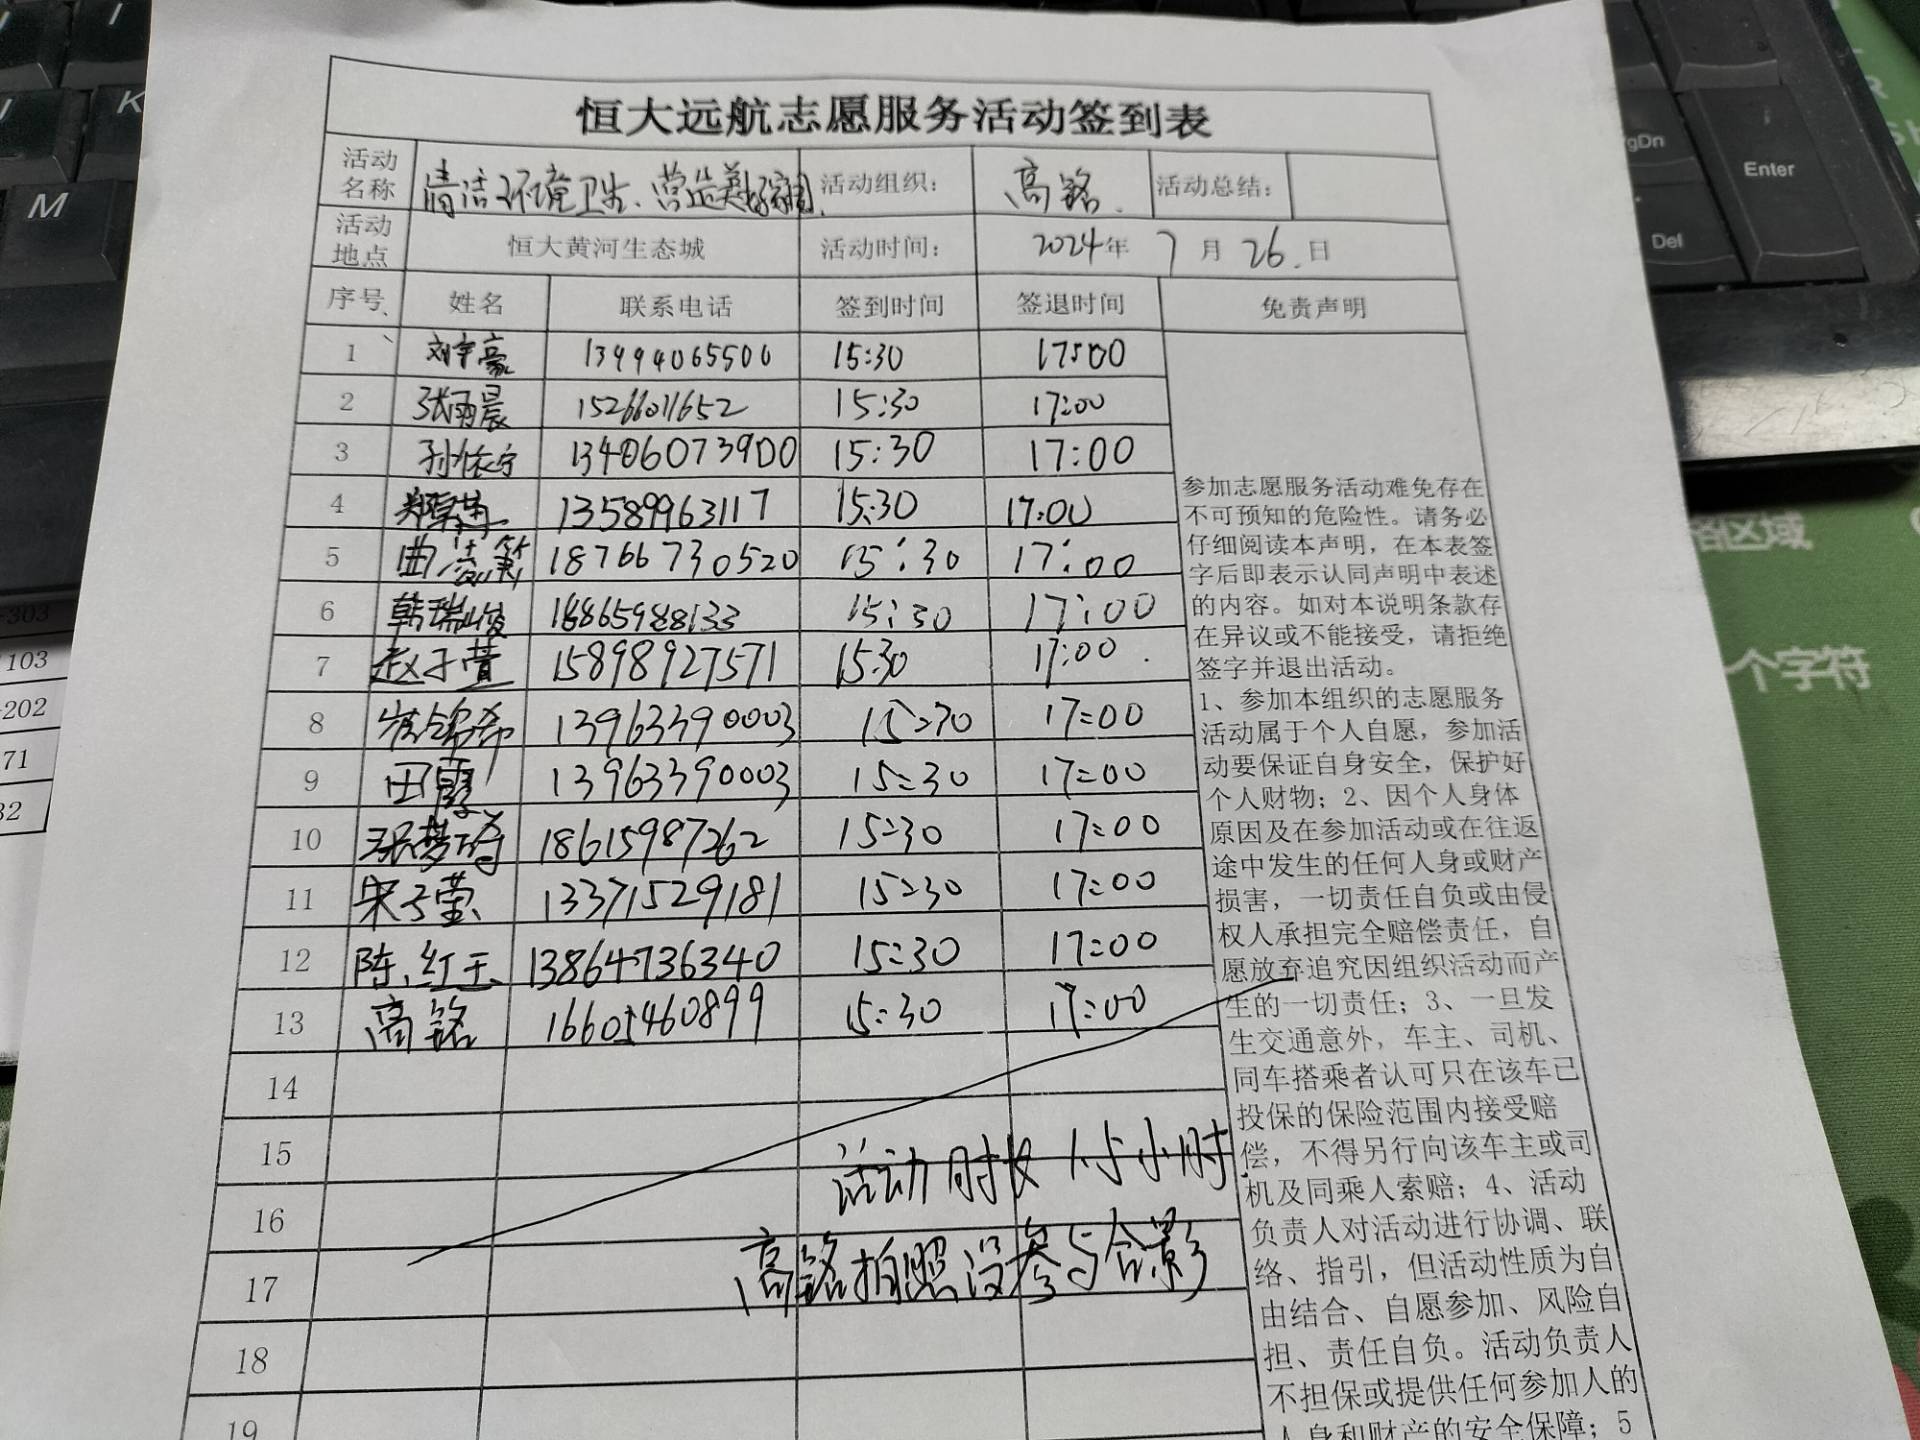 恒大远航志愿服务活动签到表
活动名称 清洁环境卫生、营造美好家园 活动组织： 高铭 活动总结：
活动地点 恒大黄河生态城 活动时间： 2024年 7月 26日
序号 姓名 联系电话 签到时间 签退时间 免责声明
1 刘宇豪 13994065500 15:30 17:00
2 张雨晨 15266011652 15:30 17:00
3 孙依宁 13406073900 15:30 17:00
4 13589963117 15:30 17:00
5 曲 18766730520 15:30 17:00
6 韩瑞俊 18865988133 15:30 17:00
7 赵子萱 15898927571 15:30 17:00
8 崔铭希 13963390003 15:30 17:00
9 田霞 13963390003 15:30 17:00
10 张梦琦 18615987262 15:30 17:00
11 宋子莹 13371529181 15:30 17:00
12 陈红玉 13864736340 15:30 17:00
13 高铭 16601460899 15:30 17:00
14
15
16
17
18
19
活动时长1.5小时
高铭拍照没参与合影
参加志愿服务活动难免存在
不可预知的危险性。请务必
仔细阅读本声明，在本表签
字后即表示认同声明中表述
的内容。如对本说明条款存
在异议或不能接受，请拒绝
签字并退出活动。
1、参加本组织的志愿服务
活动属于个人自愿，参加活
动要保证自身安全，保护好
个人财物；2、因个人身体
原因及在参加活动或在往返
途中发生的任何人身或财产
损害，一切责任自负或由侵
权人承担完全赔偿责任，自
愿放弃追究因组织活动而产
生的一切责任；3、一旦发
生交通意外，车主、司机、
同车搭乘者认可只在该车已
投保的保险范围内接受赔
偿，不得另行向该车主或司
机及同乘人索赔；4、活动
负责人对活动进行协调、联
络、指引，但活动性质为自
由结合、自愿参加、风险自
担、责任自负。活动负责人
不担保或提供任何参加人的
人身和财产的安全保障；5
K
M
PgDn
Enter
Del
-303
1103
-202
71
32
格区域
一个字符